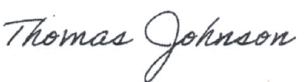 Thomas Johnson